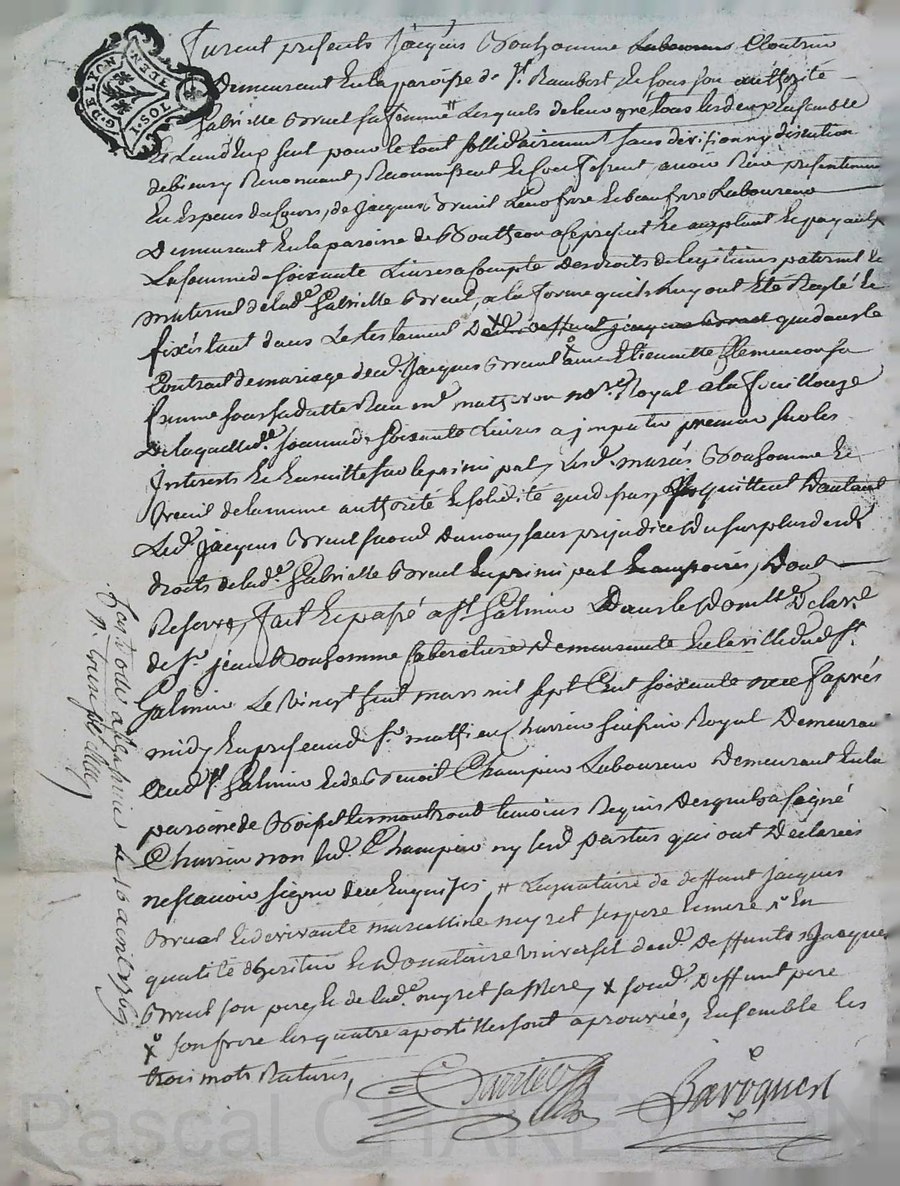 G. DE LYON
Furent presents Jacques Bonhomme Laboureur Cloutrier
Demeurant En la paroisse de St Rambert et sous son authorité
Gabrielle Breuil sa femme # Lesquels de leur gré tous les deux Ensemble
Et L'un d'Eux seul pour le tout sollidairement sans division ny discution
de biens y Renonceant, Reconnoissent Et Confessent avoir Reçu presentement
En Especes du Cours, de Jacques Breuil Leur frere Et beau frere Laboureur
Demeurant En la paroisse de Bouthéon a ce present Et acceptant Et payant
La somme de soixante Livres a Compte Des droits de legitime paternel Et
maternel de lad.e Gabrielle Breuil, a la forme quils luy ont Eté Reglé Et
fixés tant dans Le testament De x dud. deffunt Jacques Breuil que dans le
Contrait de mariage de ced. Jacques Breuil avec Etiennette Clemencon sa
femme sous sa datte Reçu me matheron no.re Royal a la fouillouze
De laquelle d.e somme de soixante Livres a jmputer premier sur les
Interests Et Ensuitte sur le principal, Les d. mariés Bonhomme Et
Breuil de la meme authorité Et solidité que dessus, quittent D'autant
Led. Jacques Breuil second du nom, sans prejudice Du surplus desd.
droits de lad.e Gabrielle Breuil En principal Et accessoires, Dont
Reserve, fait Et passé a St Galmier Dans le Domicille De la v.e
de Sr jean Bonhomme Cabaretiere Demeurante En la ville dud. St
Galmier Le vingt sept mars mil sept Cent soixante neuf après
midy En presence de Sr mathieu Charrin Royal Demeurant
Aud. St Galmier Et de Benoit Champier Laboureur Demeurant En la
paroisse de Boisset Les montrond temoins Requis Desquels a signé
Charrin non Led. Champier ny lesd. parties qui ont Declarées
ne sçavoir signer de ce Enquises, # Legataire de deffunt Jacques
Breuil Et de vivante marcelline neyret ses pere Et mere, En
qualité d'heritier Et Donataire Universel desd. Deffunts Jacques
Breuil son pere, Et de lad.e neyret sa Mere, x soud. Deffunt pere
son frere les quatre apostilles sont aprouvées, Ensemble les
trois mots Raturés,
Charrin
Baroquen
Controllé a St Galmier Le 10 avril 1769
Pascal CHAREYRON